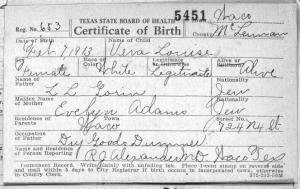 TEXAS STATE BOARD OF HEALTH 5451 Waco
Reg. No. 653 Certificate of Birth County McLennan
Date of Birth Feb 7 1913 Vera Louise
Female Race or Color White Legitimate Alive
Name of Father L L Gorin Nationality Jew
Maiden Name of Mother Evelyn Adams Nationality Jew
Residence of Parents Waco Town Street No. 724 N 4 St
Occupation of Father Dry Goods
Name and Residence of Person Reporting R J Alexander MD Waco Tex
Permanent Record. Write plainly with unfading ink. Place 1-cent stamp on reverse side
and mail within 5 days to City Registrar if birth occurs in incorporated town, otherwise to
County Clerk.